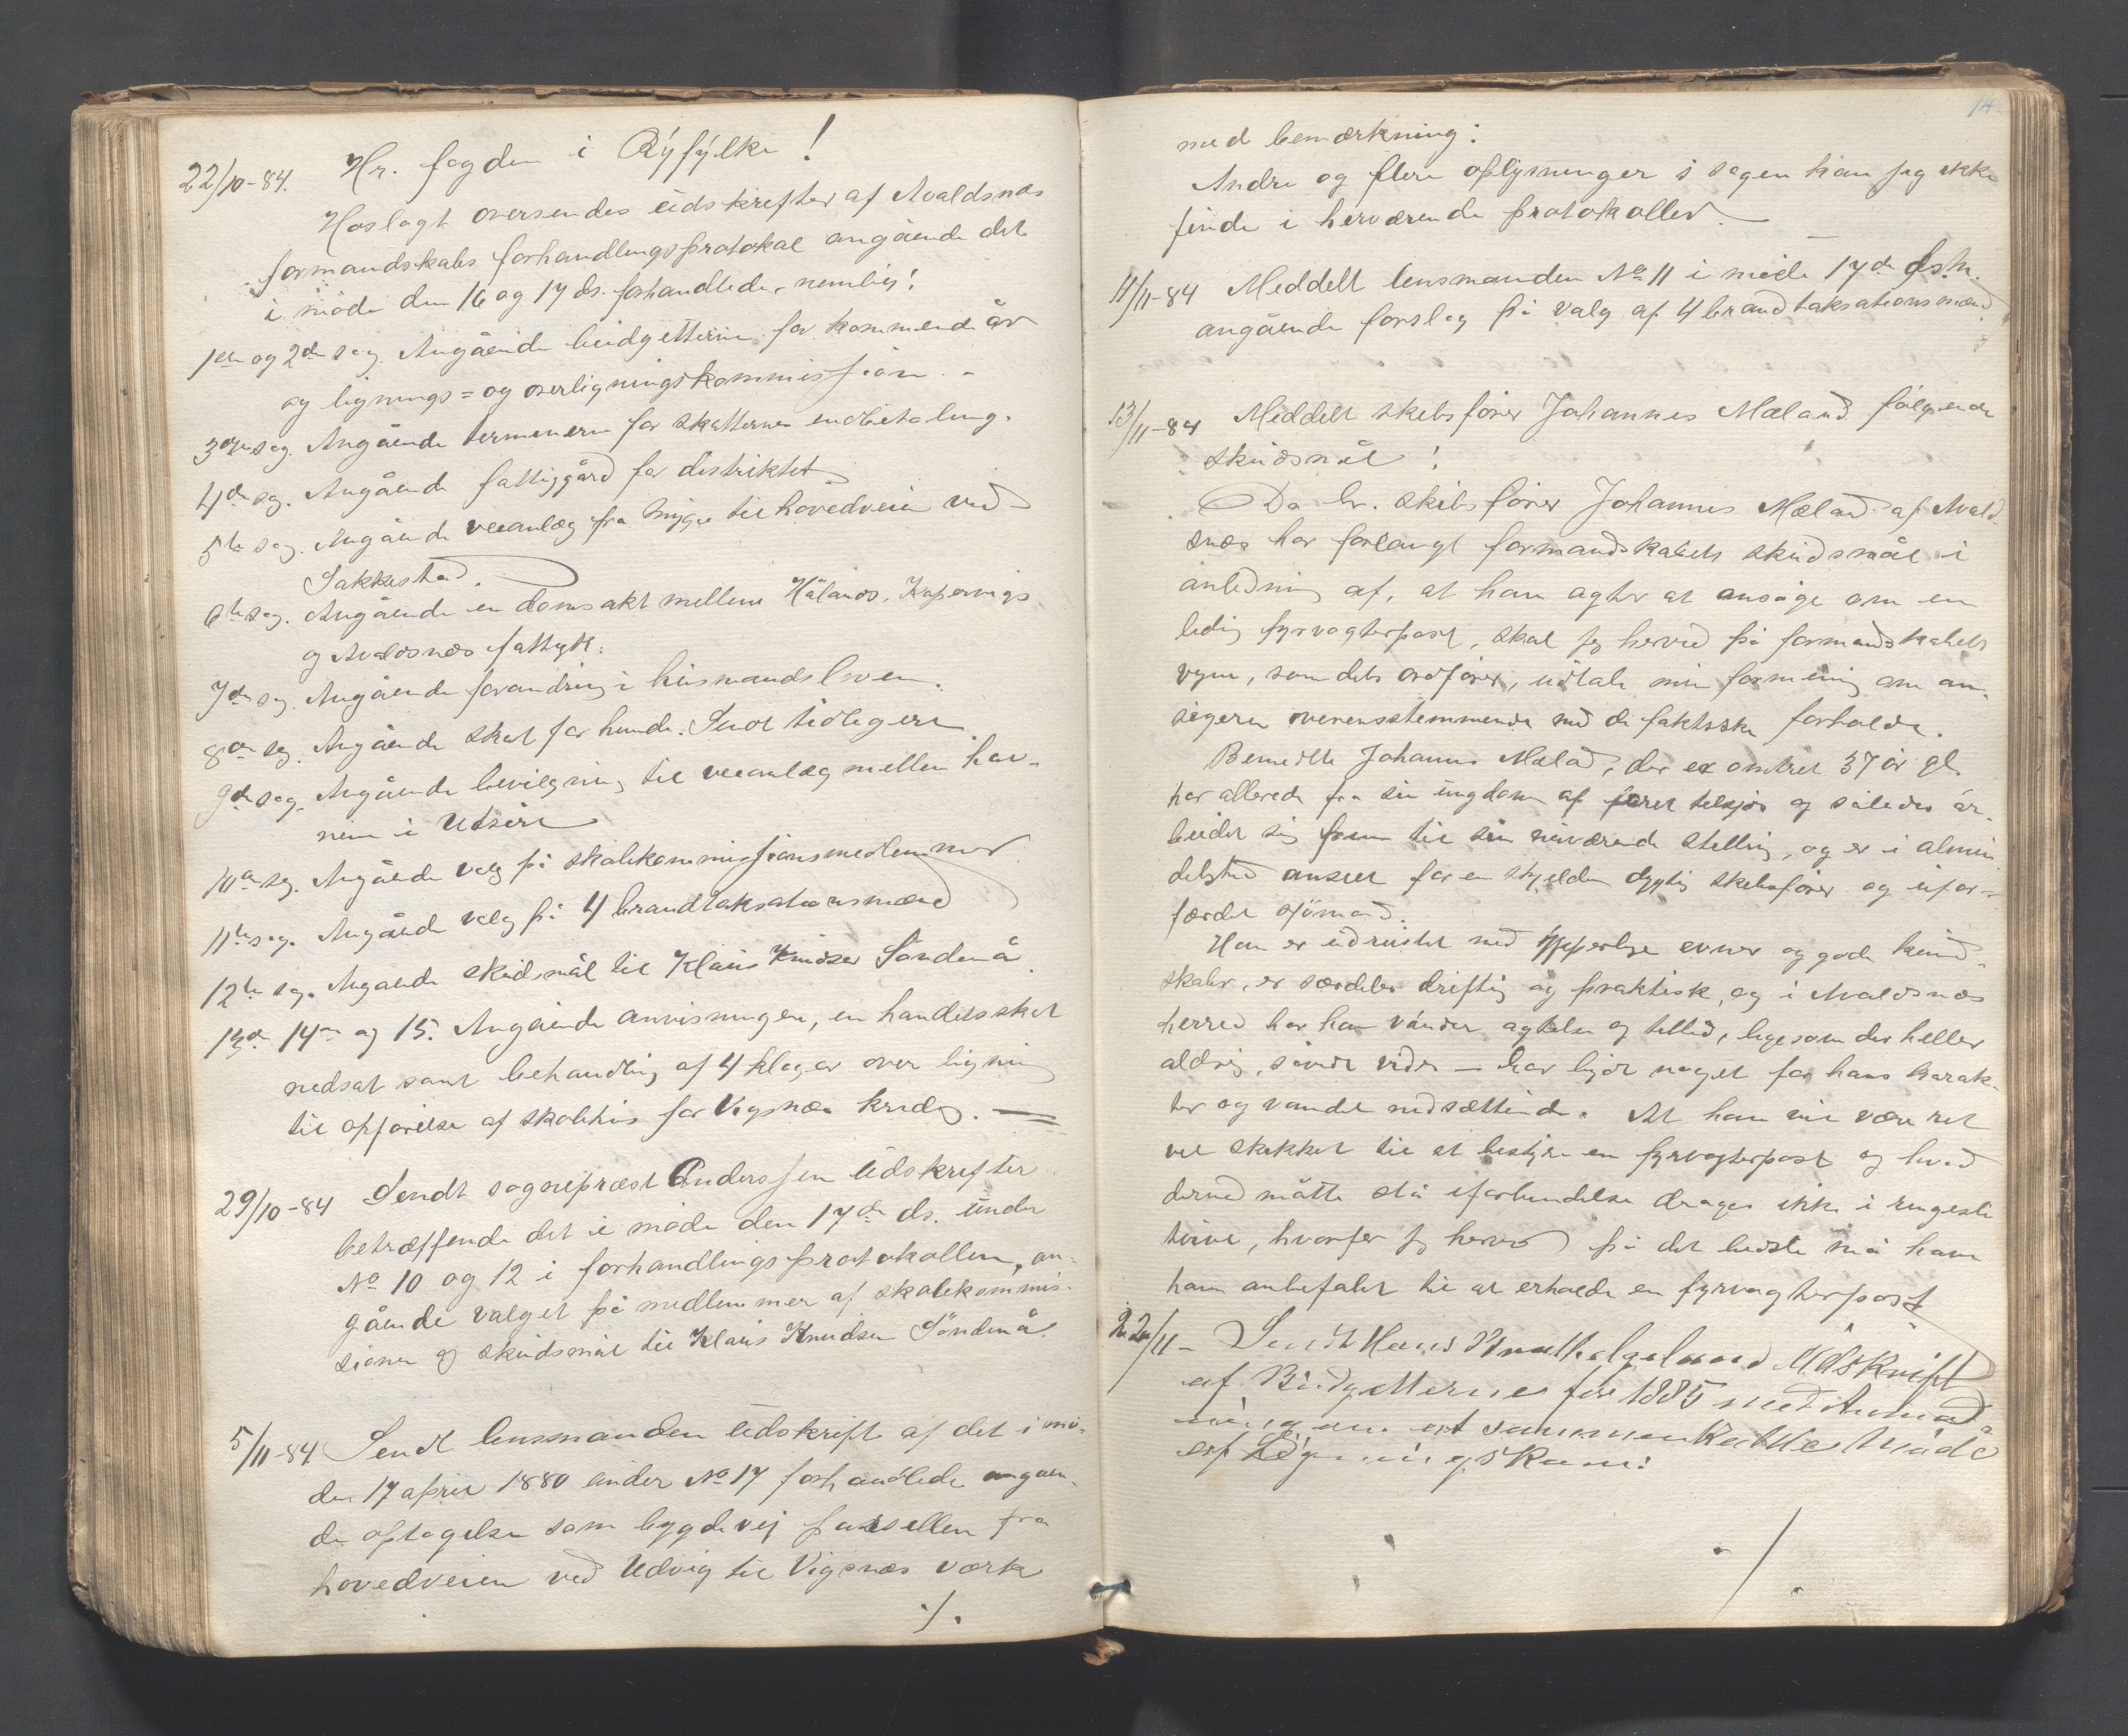 22/10-84. Hr. fogden i Ryfylke!
Hoslagt oversendes udskrifter af Avaldsnes
formandskabs forhandlingsprotokol angående det
i møde den 16 og 17 ds. forhandlede, nemlig:
1ste og 2den sag. Angående budgetterne for kommende år
og lignings= og overligningskommission. -
3die sag. Angående terminerne for skatternes indbetaling.
4de sag. Angående fattiggård for distriktet
5te sag. Angående veianlæg fra Myge til hovedveien ved
Sakkestad.
6te sag. Angående en domsakt mellem Hålands, Kopervigs
og Avaldsnes fattigk:
7de sag. Angående forandring i husmandsloven.
8de sag. Angående skat for hunde. Sendt tidligere
9de sag. Angående bevilgning til veianlæg mellem hav-
nene i Utsire
10de sag. Angående valg på skolekommissionsmedlemmer
11te sag. Angående valg på 4 brandtakstationsmænd
12te sag. Angående skudsmål til Klaus Knudsen Söndenå
13de 14de og 15. Angående anvisningen, en handelsskat
nedsat samt behandling af 4 klager over ligning
til opførelse af skolehus for Vigsnæs kreds. —
29/10-84 Sendt sogneprest Anderssen udskrifter
betræffende det i møde den 17de ds. under
No 10 og 12 i forhandlingsprotokollen, an-
gående valget på medlemmer af skolekommis-
sionen og skudsmål til Klaus Knudsen Söndenå.
5/11-84 Sendt lensmanden udskrift af det i mø-
de 17 april 1880 under No 17 forhandlede angåen-
de optagelse som bygdevej parsellen fra
hovedveien ved Udvig til Vigsnæs værk
./.
14
med bemærkning:
Andre og flere oplysninger i sagen kan jeg ikke
finde i herværende protokoller.
11/11-84 Meddelt lensmanden No 11 i møde 17de f.m.
angående forslag på valg af 4 brandtaksationsmænd
13/11-84 Meddelt skibsfører Johannes Mæland følgende
skudsmål:
Da hr. skibsfører Johannes Mæland af Avald-
snæs har forlangt formandskabets skudsmål i
anledning af, at han agter at ansøge om en
ledig fyrvogterpost, skal jeg herved på formandskabets
vegne, som dets ordfører, udtale min formening om an-
søgeren overensstemmende med de faktiske forholde.
Bemeldte Johannes Mæland, der er omtret 37 år gl.
har allerede fra sin ungdom af faret tilsjøs og således ar-
beidet sig frem til sin nuværende stilling, og er i almin
delighed anseet for en sjelden dygtig skibsfører og ufor-
færdet sjömand.
Han er udrustet med ypperlige evner og gode kund-
skaber, er særdeles driftig og praktisk, og i Avaldsnæs
herred har han vundet agtelse og tillid, ligesom der heller
aldrig, såvidt vides — har lydt noget for hans karak-
ter og vandel nedsættende. At han vil være ret
vel skikket til at bestyre en fyrvogterpost og hvad
dermed måtte stå i forbindelse drages ikke i ringeste
tvivl, hvorfor jeg herved på det bedste må have
ham anbefalet til at erholde en fyrvogterpost
22/11- Sendt Hans Udskrift
af Budgetterne for 1885 med Anmod
ning om at sammenkalde Møde
af Ligningskom:
./.